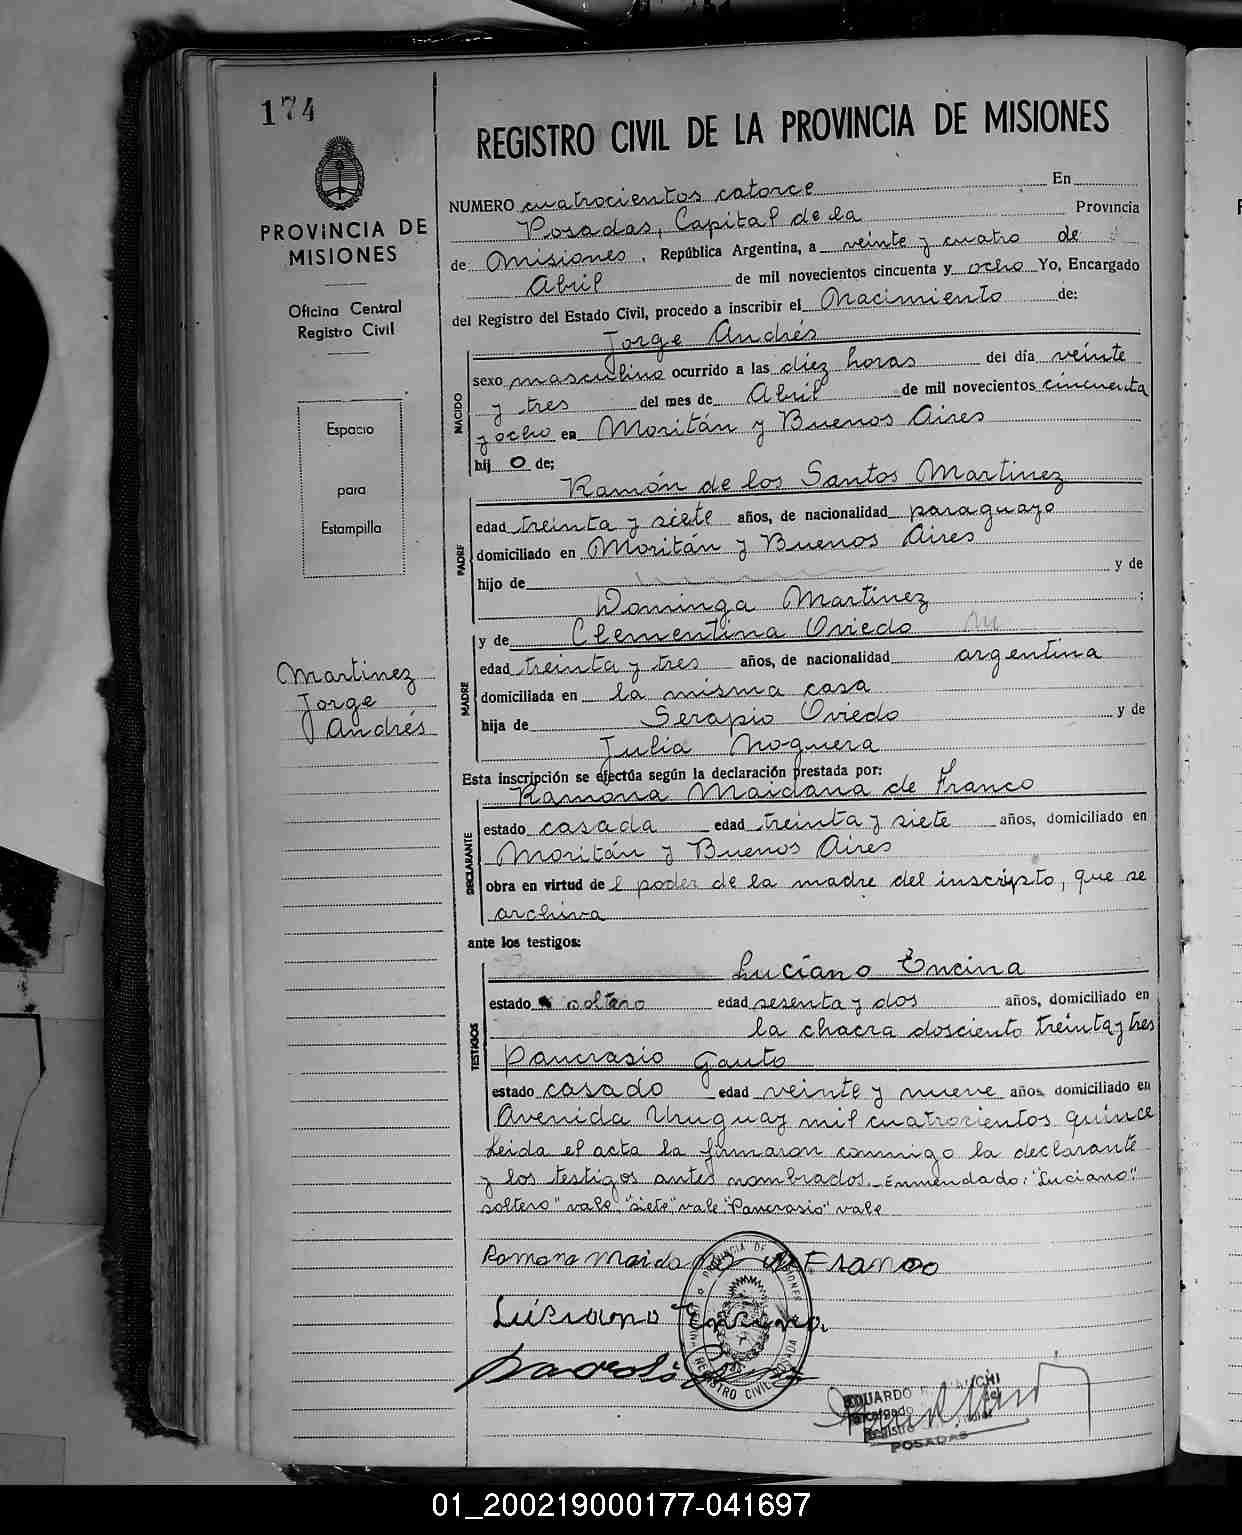 174
PROVINCIA DE
MISIONES
Oficina Central
Registro Civil
Espacio
para
Estampilla
Martinez
Jorge
Andrés
REGISTRO CIVIL DE LA PROVINCIA DE MISIONES
NUMERO cuatrocientos catorce En
Posadas, Capital de la Provincia
de Misiones, República Argentina, a veinte y cuatro de
Abril de mil novecientos cincuenta y ocho Yo, Encargado
del Registro del Estado Civil, procedo a inscribir el Nacimiento de:
Jorge Andrés
NACIDO
sexo masculino ocurrido a las diez horas del día veinte
y tres del mes de Abril de mil novecientos cincuenta
y ocho en Moritán y Buenos Aires
hij o de;
Ramón de los Santos Martinez
PADRE
edad treinta y siete años, de nacionalidad paraguayo
domiciliado en Moritán y Buenos Aires
hijo de y de
Dominga Martinez ;
y de Clementina Oviedo
MADRE
edad treinta y tres años, de nacionalidad argentina
domiciliada en la misma casa
hija de Serapio Oviedo y de
Julia Noguera
Esta inscripción se efectúa según la declaración prestada por:
Ramona Maidana de Franco
DECLARANTE
estado casada edad treinta y siete años, domiciliado en
Moritán y Buenos Aires
obra en virtud de l poder de la madre del inscripto, que se
archiva
ante los testigos:
Luciano Encina
TESTIGOS
estado soltero edad sesenta y dos años, domiciliado en
la chacra dosciento treinta y tres
Pancrasio Gauto
estado casado edad veinte y nueve años, domiciliado en
Avenida Uruguay mil cuatrocientos quince
Leida el acta la firmaron conmigo la declarante
y los testigos antes nombrados. Enmendado: "Luciano"
soltero" vale, "siete", vale. "Pancrasio" vale
Romona Maidana de Franco
Lusiano Encina
PROVINCIA DE MISIONES
REGISTRO CIVIL POSADAS
EDUARDO
Encargado
Registro
POSADAS
01_200219000177-041697